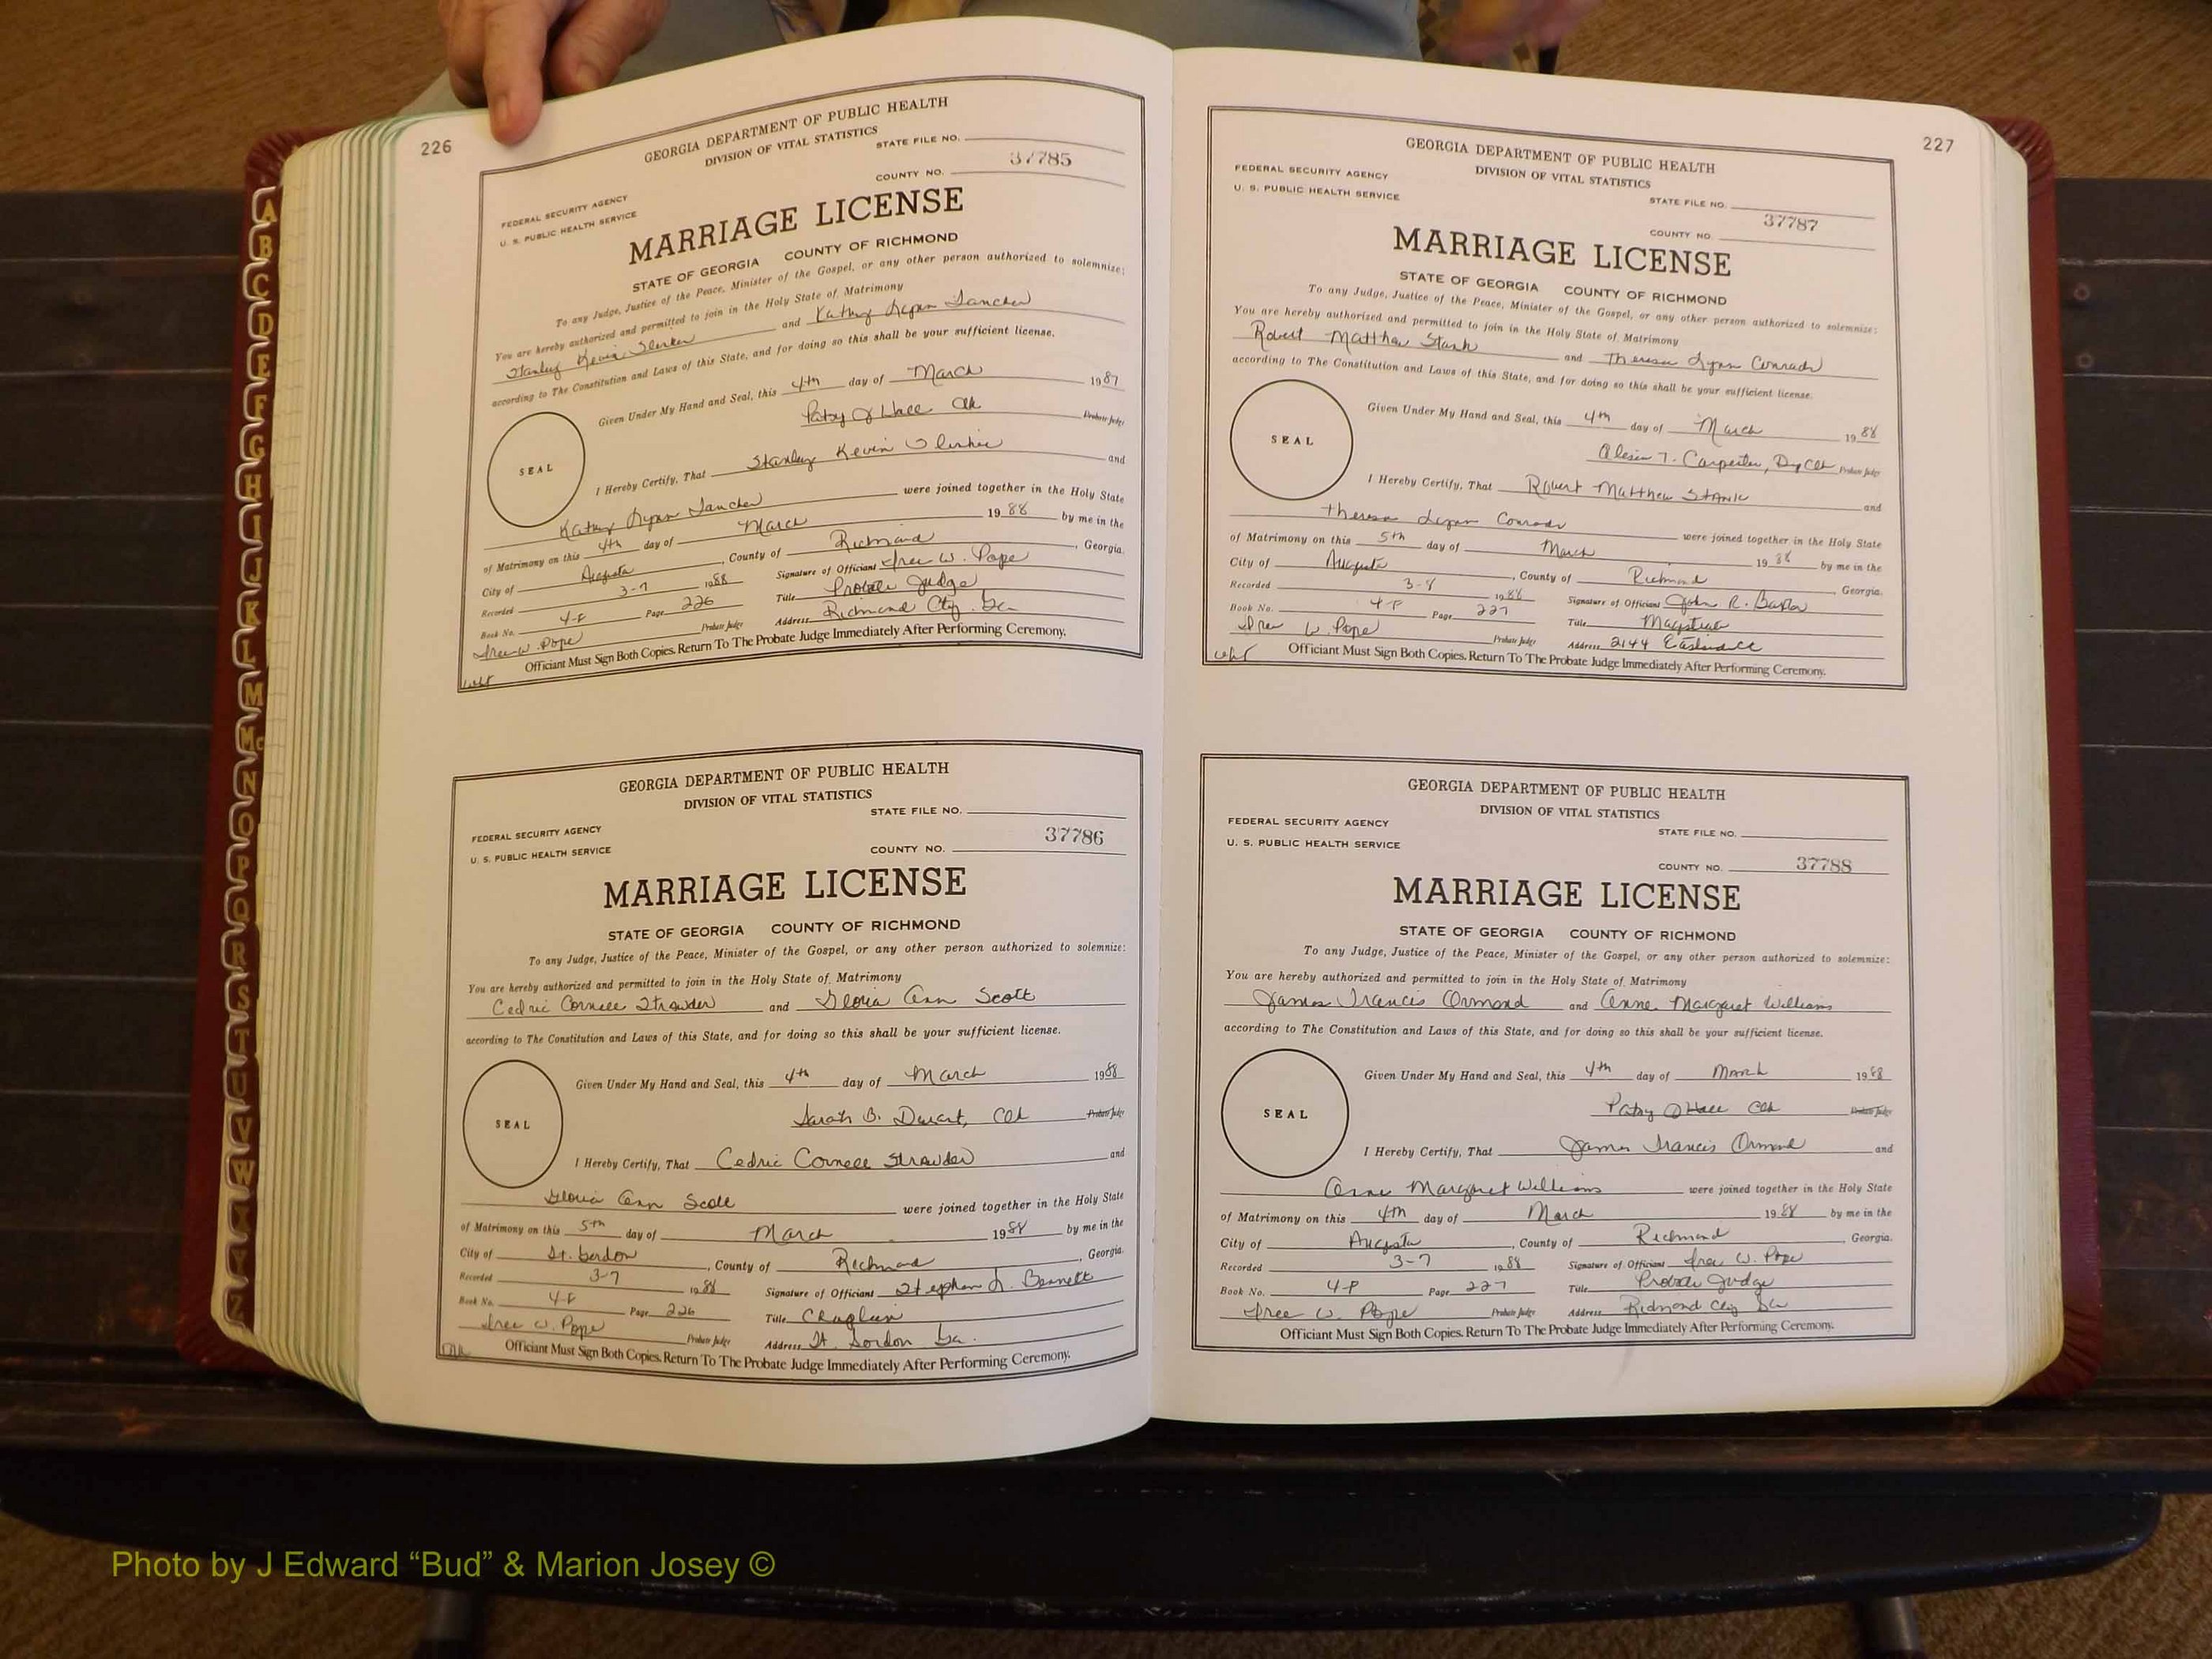 226
GEORGIA DEPARTMENT OF PUBLIC HEALTH
DIVISION OF VITAL STATISTICS
STATE FILE NO.
37785
COUNTY NO.
FEDERAL SECURITY AGENCY
U. S. PUBLIC HEALTH SERVICE
MARRIAGE LICENSE
STATE OF GEORGIA COUNTY OF RICHMOND
To any Judge, Justice of the Peace, Minister of the Gospel, or any other person authorized to solemnize:
You are hereby authorized and permitted to join in the Holy State of Matrimony
Stanley Kevin and Kathy Lynn
according to The Constitution and Laws of this State, and for doing so this shall be your sufficient license.
Given Under My Hand and Seal, this 4th day of March 1987
Patsy J Hall Clk Probate Judge
SEAL
I Hereby Certify, That Stanley Kevin and
Kathy Lynn were joined together in the Holy State
of Matrimony on this 4th day of March 1988 by me in the
City of Augusta, County of Richmond, Georgia.
Recorded 3-7 1988 Signature of Officiant W. Pope
Book No. Page 226 Title Probate Judge
W. Pope Probate Judge Address Richmond Cty. Ga
Officiant Must Sign Both Copies. Return To The Probate Judge Immediately After Performing Ceremony.
GEORGIA DEPARTMENT OF PUBLIC HEALTH
DIVISION OF VITAL STATISTICS
STATE FILE NO.
37786
FEDERAL SECURITY AGENCY
U. S. PUBLIC HEALTH SERVICE
COUNTY NO.
MARRIAGE LICENSE
STATE OF GEORGIA COUNTY OF RICHMOND
To any Judge, Justice of the Peace, Minister of the Gospel, or any other person authorized to solemnize:
You are hereby authorized and permitted to join in the Holy State of Matrimony
Cedric Cornell Strawder and Gloria Ann Scott
according to The Constitution and Laws of this State, and for doing so this shall be your sufficient license.
Given Under My Hand and Seal, this 4th day of March 1988
Sarah B. Clk Probate Judge
SEAL
I Hereby Certify, That Cedric Cornell Strawder and
Gloria Ann Scott were joined together in the Holy State
of Matrimony on this 5th day of March 1988 by me in the
City of Ft. Gordon, County of Richmond, Georgia.
Recorded 3-7 1988 Signature of Officiant Stephen L. Bennett
Book No. Page 226 Title Chaplain
W. Pope Probate Judge Address Ft. Gordon Ga.
Officiant Must Sign Both Copies. Return To The Probate Judge Immediately After Performing Ceremony.
227
GEORGIA DEPARTMENT OF PUBLIC HEALTH
DIVISION OF VITAL STATISTICS
FEDERAL SECURITY AGENCY
U. S. PUBLIC HEALTH SERVICE
STATE FILE NO.
37787
COUNTY NO.
MARRIAGE LICENSE
STATE OF GEORGIA COUNTY OF RICHMOND
To any Judge, Justice of the Peace, Minister of the Gospel, or any other person authorized to solemnize:
You are hereby authorized and permitted to join in the Holy State of Matrimony
Robert Matthew Stank and Theresa Lynn Conrads
according to The Constitution and Laws of this State, and for doing so this shall be your sufficient license.
Given Under My Hand and Seal, this 4th day of March 1988
T. Carpenter, Dep Clk Probate Judge
SEAL
I Hereby Certify, That Robert Matthew Stank and
Theresa Lynn Conrads were joined together in the Holy State
of Matrimony on this 5th day of March 1988 by me in the
City of Augusta, County of Richmond, Georgia.
Recorded 3-8 1988 Signature of Officiant John R. Baxter
Book No. 4-P Page 227 Title Magistrate
W. Pope Probate Judge Address 2144
Officiant Must Sign Both Copies. Return To The Probate Judge Immediately After Performing Ceremony.
GEORGIA DEPARTMENT OF PUBLIC HEALTH
DIVISION OF VITAL STATISTICS
FEDERAL SECURITY AGENCY
STATE FILE NO.
U. S. PUBLIC HEALTH SERVICE
COUNTY NO. 37788
MARRIAGE LICENSE
STATE OF GEORGIA COUNTY OF RICHMOND
To any Judge, Justice of the Peace, Minister of the Gospel, or any other person authorized to solemnize:
You are hereby authorized and permitted to join in the Holy State of Matrimony
James Francis Ormond and Anne Margaret Williams
according to The Constitution and Laws of this State, and for doing so this shall be your sufficient license.
Given Under My Hand and Seal, this 4th day of March 1988
Patsy J Hall Clk Probate Judge
SEAL
I Hereby Certify, That James Francis Ormond and
Anne Margaret Williams were joined together in the Holy State
of Matrimony on this 4th day of March 1988 by me in the
City of Augusta, County of Richmond, Georgia.
Recorded 3-7 1988 Signature of Officiant W. Pope
Book No. 4-P Page 227 Title Probate Judge
W. Pope Probate Judge Address Richmond Cty Ga
Officiant Must Sign Both Copies. Return To The Probate Judge Immediately After Performing Ceremony.
A
B
C
D
E
F
G
H
I
J
K
L
M
Mc
N
O
P
Q
R
S
T
U
V
W
X
Y
Z
Photo by J Edward “Bud” & Marion Josey ©